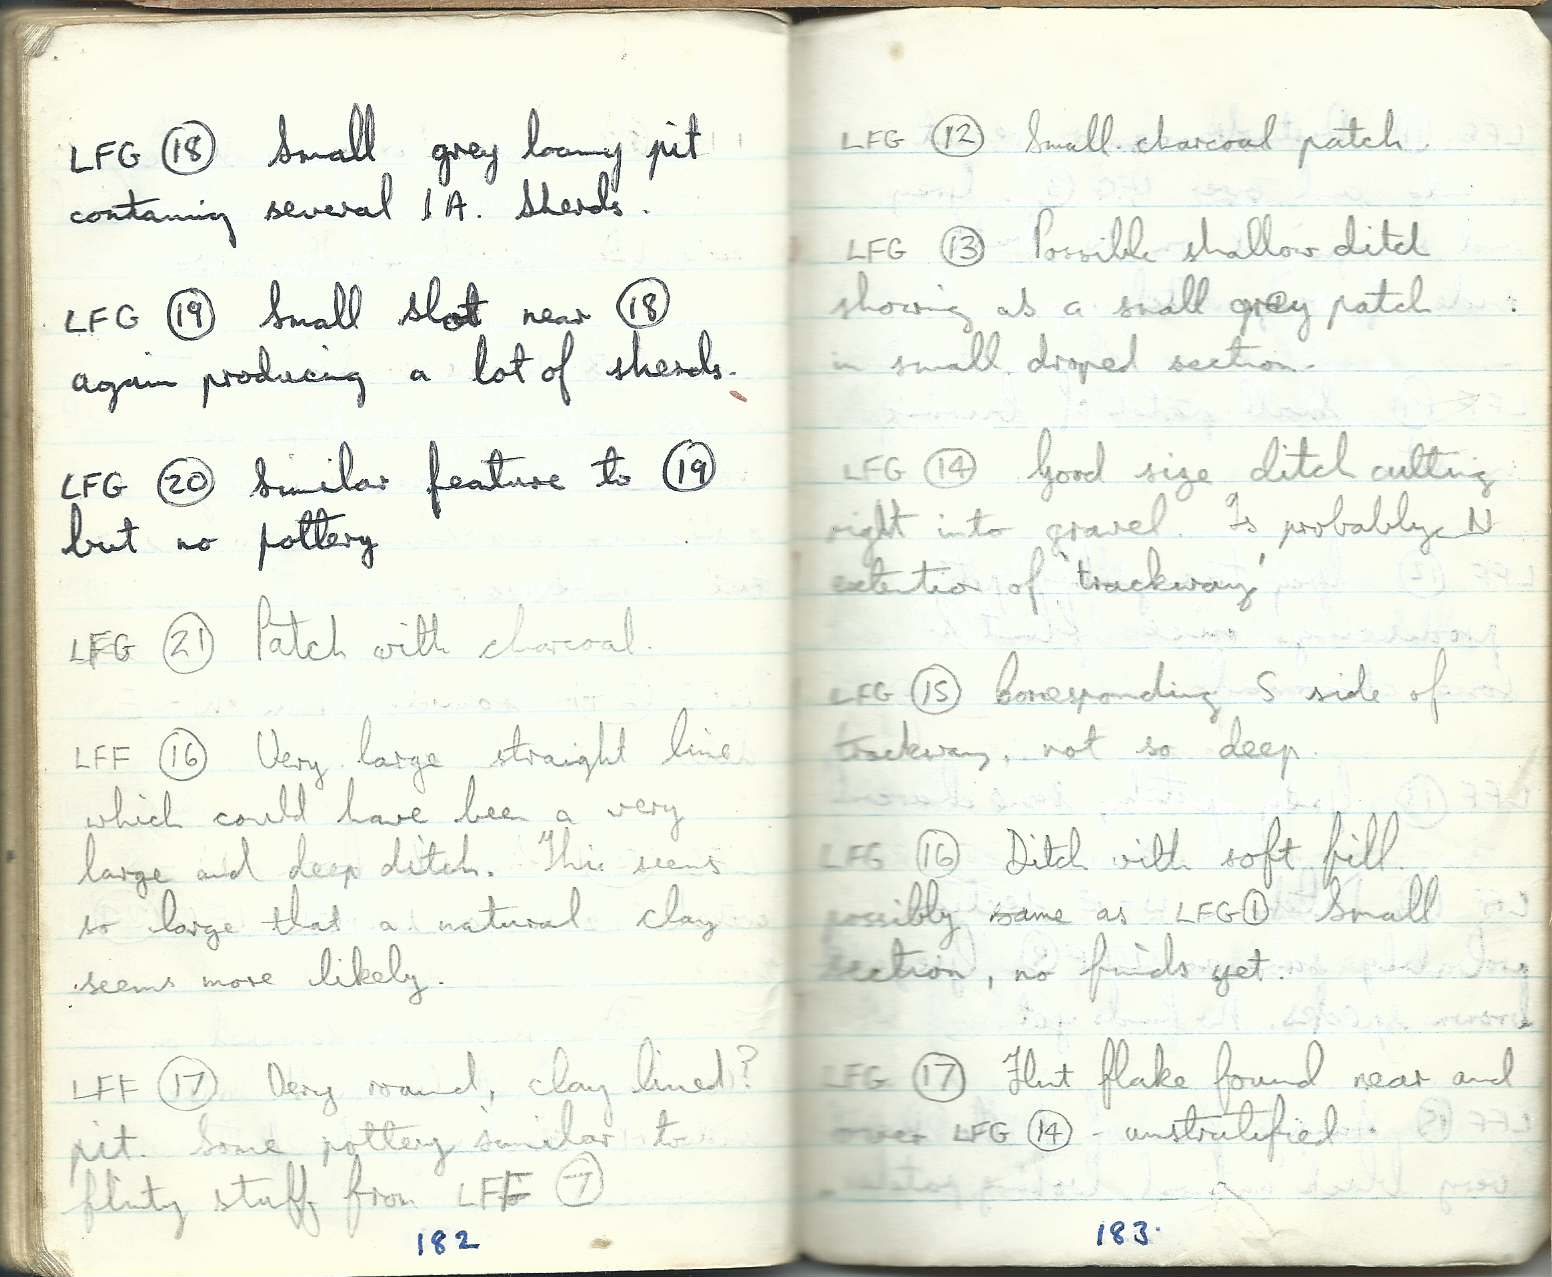 LFG 18 Small grey loamy pit
containing several I A. Sherds.
LFG 19 Small slot near 18
again producing a lot of sherds.
LFG 20 Similar feature to 19
but no pottery
LFG 21 Patch with charcoal.
LFF 16 Very large straight line
which could have been a very
large and deep ditch. This seems
so large that a natural clay
seems more likely.
LFF 17 Very round, clay lined?
pit. Some pottery similar to
flinty stuff from LFF 7
182
LFG 12 Small charcoal patch.
LFG 13 Possible shallow ditch
showing as a small grey patch
in small droped section.
LFG 14 Good size ditch cutting
right into gravel. Is probably N
extention of 'trackway'
LFG 15 Corresponding S side of
trackway, not so deep.
LFG 16 Ditch with soft fill.
possibly same as LFG 1 Small
section, no finds yet.
LFG 17 Flint flake found near and
over LFG 14 - unstratified.
183.